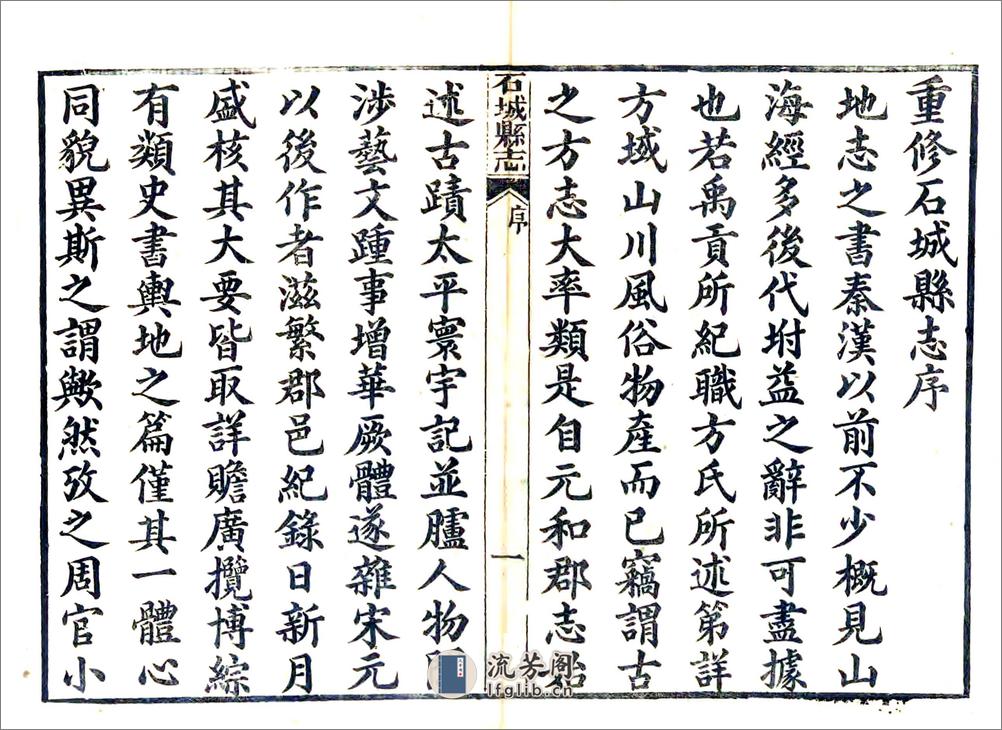 重修石城縣志序
地志之書秦漢以前不少概見山
海經多後代坿益之辭非可盡據
也若禹貢所紀職方氏所述第詳
方域山川風俗物產而已竊謂古
之方志大率類是自元和郡志始
石城縣志
序
一
述古蹟太平寰宇記並臚人物
涉藝文踵事增華厥體遂雜宋元
以後作者滋繁郡邑紀錄日新月
盛核其大要皆取詳贍廣攬博綜
有類史書輿地之篇僅其一體心
同貌異斯之謂歟然攷之周官小
流芳阁
lfglib.cn